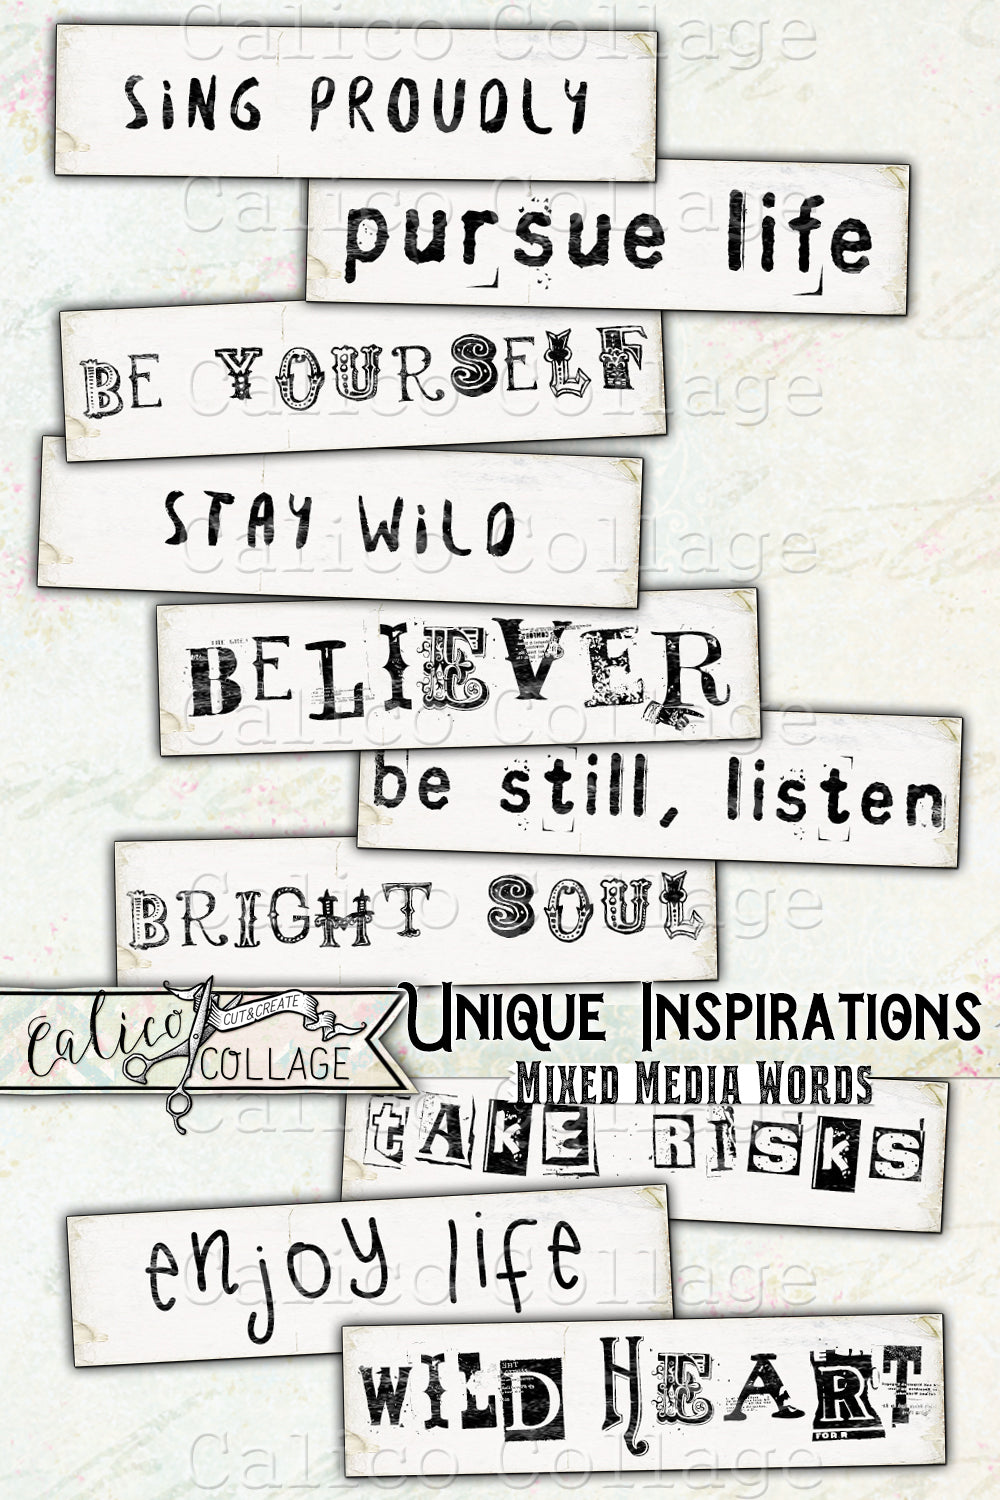 Calico Collage
SiNG PROUDLY
Calico Collage
pursue life
BE YOURSELF
Calico Collage
STAY WiLD
Calico Collage
BELIEVER
Calico Collage
be still, listen
BRIGHT SOUL
Calico Collage
Calico
CUT & CREATE
COLLAGE
UNIQUE INSPIRATIONS
MIXED MEDIA WORDS
Calico Collage
tAKE RISKS
enjoy life
Calico Collage
WILD HEART
FORR
Calico Collage